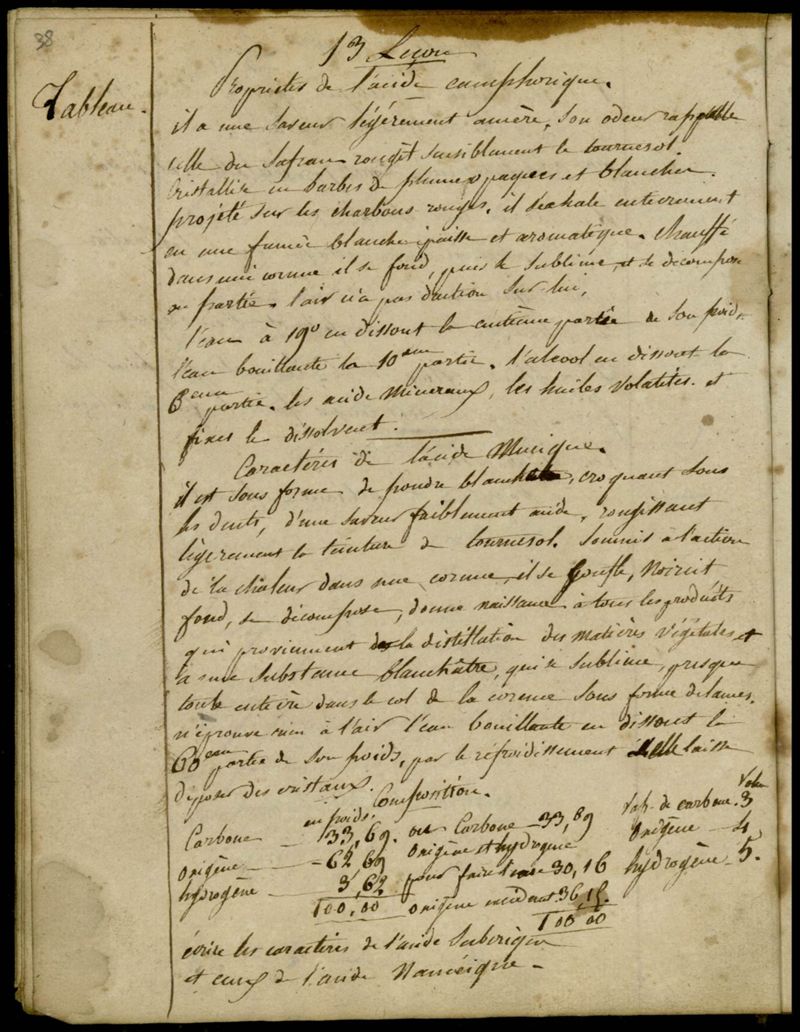 38
13 Leçon
Tableau.
Propriétés de l'acide camphorique.
il a une saveur légèrement amère, son odeur rappelle
celle du safran rougit sensiblement le tournesol.
Cristallise en barbes de plumes opaques et blanches.
projété sur les charbons rouges, il s'exhale entierement
en une fumée blanche épaisse et aromatique. Chauffé
dans une cornue il se fond, puis se sublime, et se decompose
en partie. l'air n'a pas d'action sur lui,
l'eau à 19° en dissout la centieme partie de son poids.
l'eau bouillante la 10eme partie. l'alcool en dissout la
6eme partie. les acides Mineraux, les huiles volatiles et
fixes le dissolvent.
Caractéres de l'acide Mucique.
il est sous forme de poudre blanchatre, croquant sous
les dents, d'une saveur faiblement acide, rougissant
légerement la teinture de tournesol. Soumis à l'action
de la chaleur dans une cornue, il se gonfle, Noircit
fond, se décompose, donne naissance à tous les produits
qui proviennent de la distillation des matières végétales, et
à une substance blanchâtre, qui se sublime, presque
toute entière dans le col de la cornue sous forme de lames.
n'éprouve rien à l'air l'eau bouillante en dissout la
60eme partie de son poids, par le réfroidissement elle laisse
déposer des cristaux.
Composition.
en poids. Volu
Carbone 33,69. ou Carbone 33,69 Vap. de carbone. 3
Oxigène 62 69 Oxigène et hydrogène Oxigène 4
hydrogène 3,62 pour faire l'eau 30,16 hydrogène 5.
100,00 Oxigène excédent 36,15.
100 00
écrire les caractères de l'acide Suberique
et ceux de l'acide